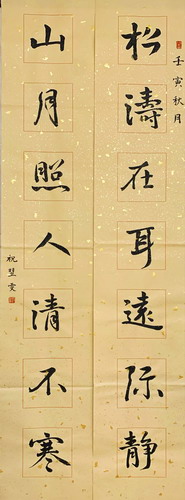 壬寅秋月
松濤在耳遠际静
山月照人清不寒
祝堃雯